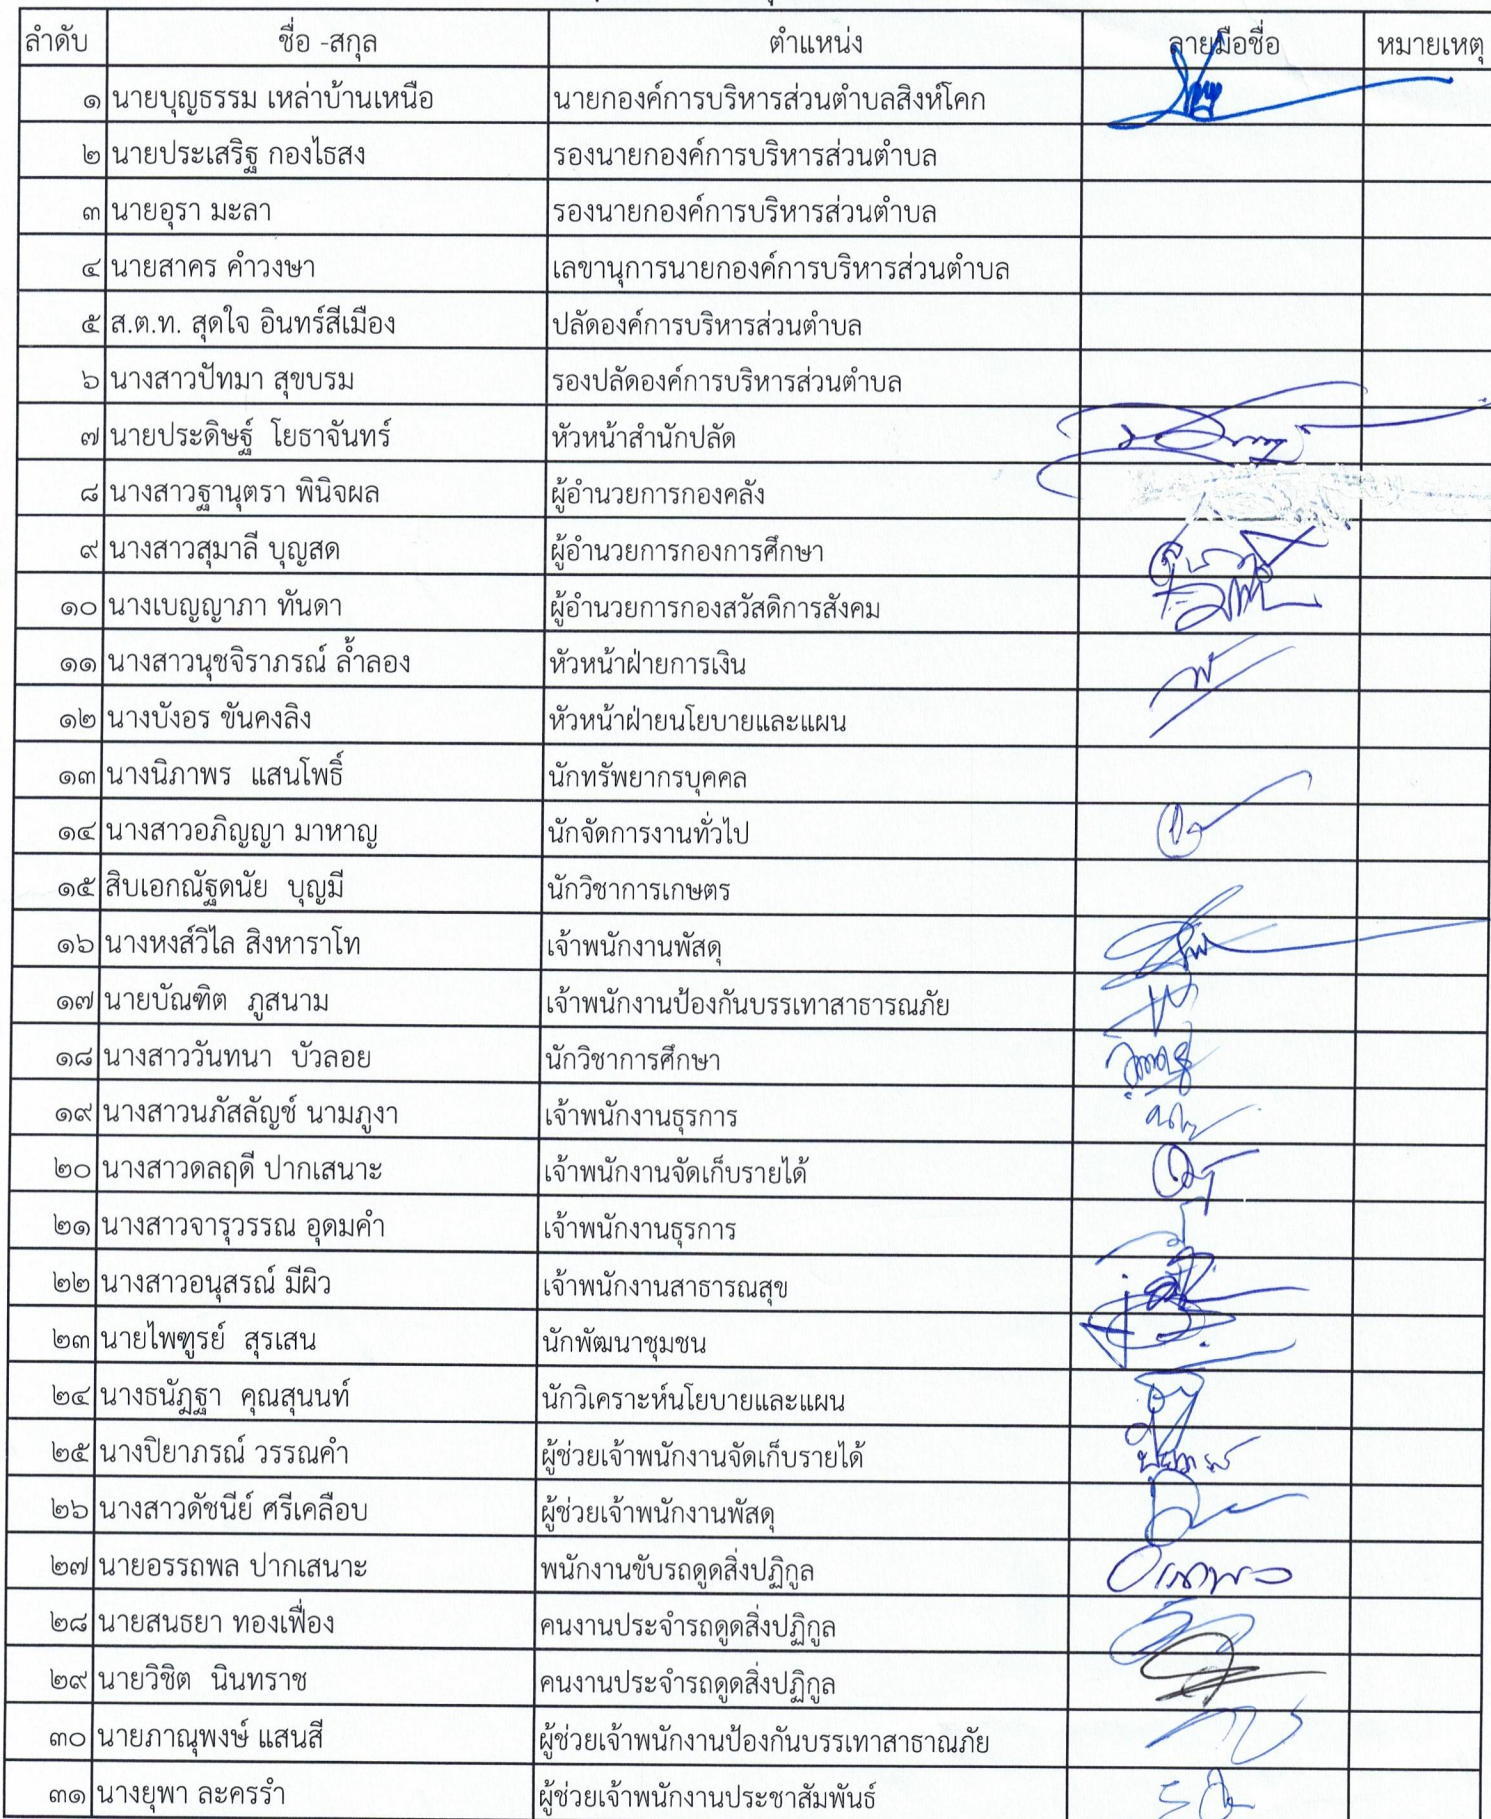 ลำดับ ชื่อ -สกุล ตำแหน่ง ลายมือชื่อ หมายเหตุ
๑ นายบุญธรรม เหล่าบ้านเหนือ นายกองค์การบริหารส่วนตำบลสิงห์โคก
๒ นายประเสริฐ กองไธสง รองนายกองค์การบริหารส่วนตำบล
๓ นายอุรา มะลา รองนายกองค์การบริหารส่วนตำบล
๔ นายสาคร คำวงษา เลขานุการนายกองค์การบริหารส่วนตำบล
๕ ส.ต.ท. สุดใจ อินทร์สีเมือง ปลัดองค์การบริหารส่วนตำบล
๖ นางสาวปัทมา สุขบรม รองปลัดองค์การบริหารส่วนตำบล
๗ นายประดิษฐ์ โยธาจันทร์ หัวหน้าสำนักปลัด
๘ นางสาวฐานุตรา พินิจผล ผู้อำนวยการกองคลัง
๙ นางสาวสุมาลี บุญสด ผู้อำนวยการกองการศึกษา
๑๐ นางเบญญาภา ทันดา ผู้อำนวยการกองสวัสดิการสังคม
๑๑ นางสาวนุชจิราภรณ์ ล้ำลอง หัวหน้าฝ่ายการเงิน
๑๒ นางบังอร ขันคงลิง หัวหน้าฝ่ายนโยบายและแผน
๑๓ นางนิภาพร แสนโพธิ์ นักทรัพยากรบุคคล
๑๔ นางสาวอภิญญา มาหาญ นักจัดการงานทั่วไป
๑๕ สิบเอกณัฐดนัย บุญมี นักวิชาการเกษตร
๑๖ นางหงส์วิไล สิงหาราโท เจ้าพนักงานพัสดุ
๑๗ นายบัณฑิต ภูสนาม เจ้าพนักงานป้องกันบรรเทาสาธารณภัย
๑๘ นางสาววันทนา บัวลอย นักวิชาการศึกษา
๑๙ นางสาวนภัสลัญช์ นามภูงา เจ้าพนักงานธุรการ
๒๐ นางสาวดลฤดี ปากเสนาะ เจ้าพนักงานจัดเก็บรายได้
๒๑ นางสาวจารุวรรณ อุดมคำ เจ้าพนักงานธุรการ
๒๒ นางสาวอนุสรณ์ มีผิว เจ้าพนักงานสาธารณสุข
๒๓ นายไพฑูรย์ สุรเสน นักพัฒนาชุมชน
๒๔ นางธนัฏฐา คุณสุนนท์ นักวิเคราะห์นโยบายและแผน
๒๕ นางปิยาภรณ์ วรรณคำ ผู้ช่วยเจ้าพนักงานจัดเก็บรายได้
๒๖ นางสาวดัชนีย์ ศรีเคลือบ ผู้ช่วยเจ้าพนักงานพัสดุ
๒๗ นายอรรถพล ปากเสนาะ พนักงานขับรถดูดสิ่งปฏิกูล
๒๘ นายสนธยา ทองเฟื่อง คนงานประจำรถดูดสิ่งปฏิกูล
๒๙ นายวิชิต นินทราช คนงานประจำรถดูดสิ่งปฏิกูล
๓๐ นายภาณุพงษ์ แสนสี ผู้ช่วยเจ้าพนักงานป้องกันบรรเทาสาธาณภัย
๓๑ นางยุพา ละครรำ ผู้ช่วยเจ้าพนักงานประชาสัมพันธ์